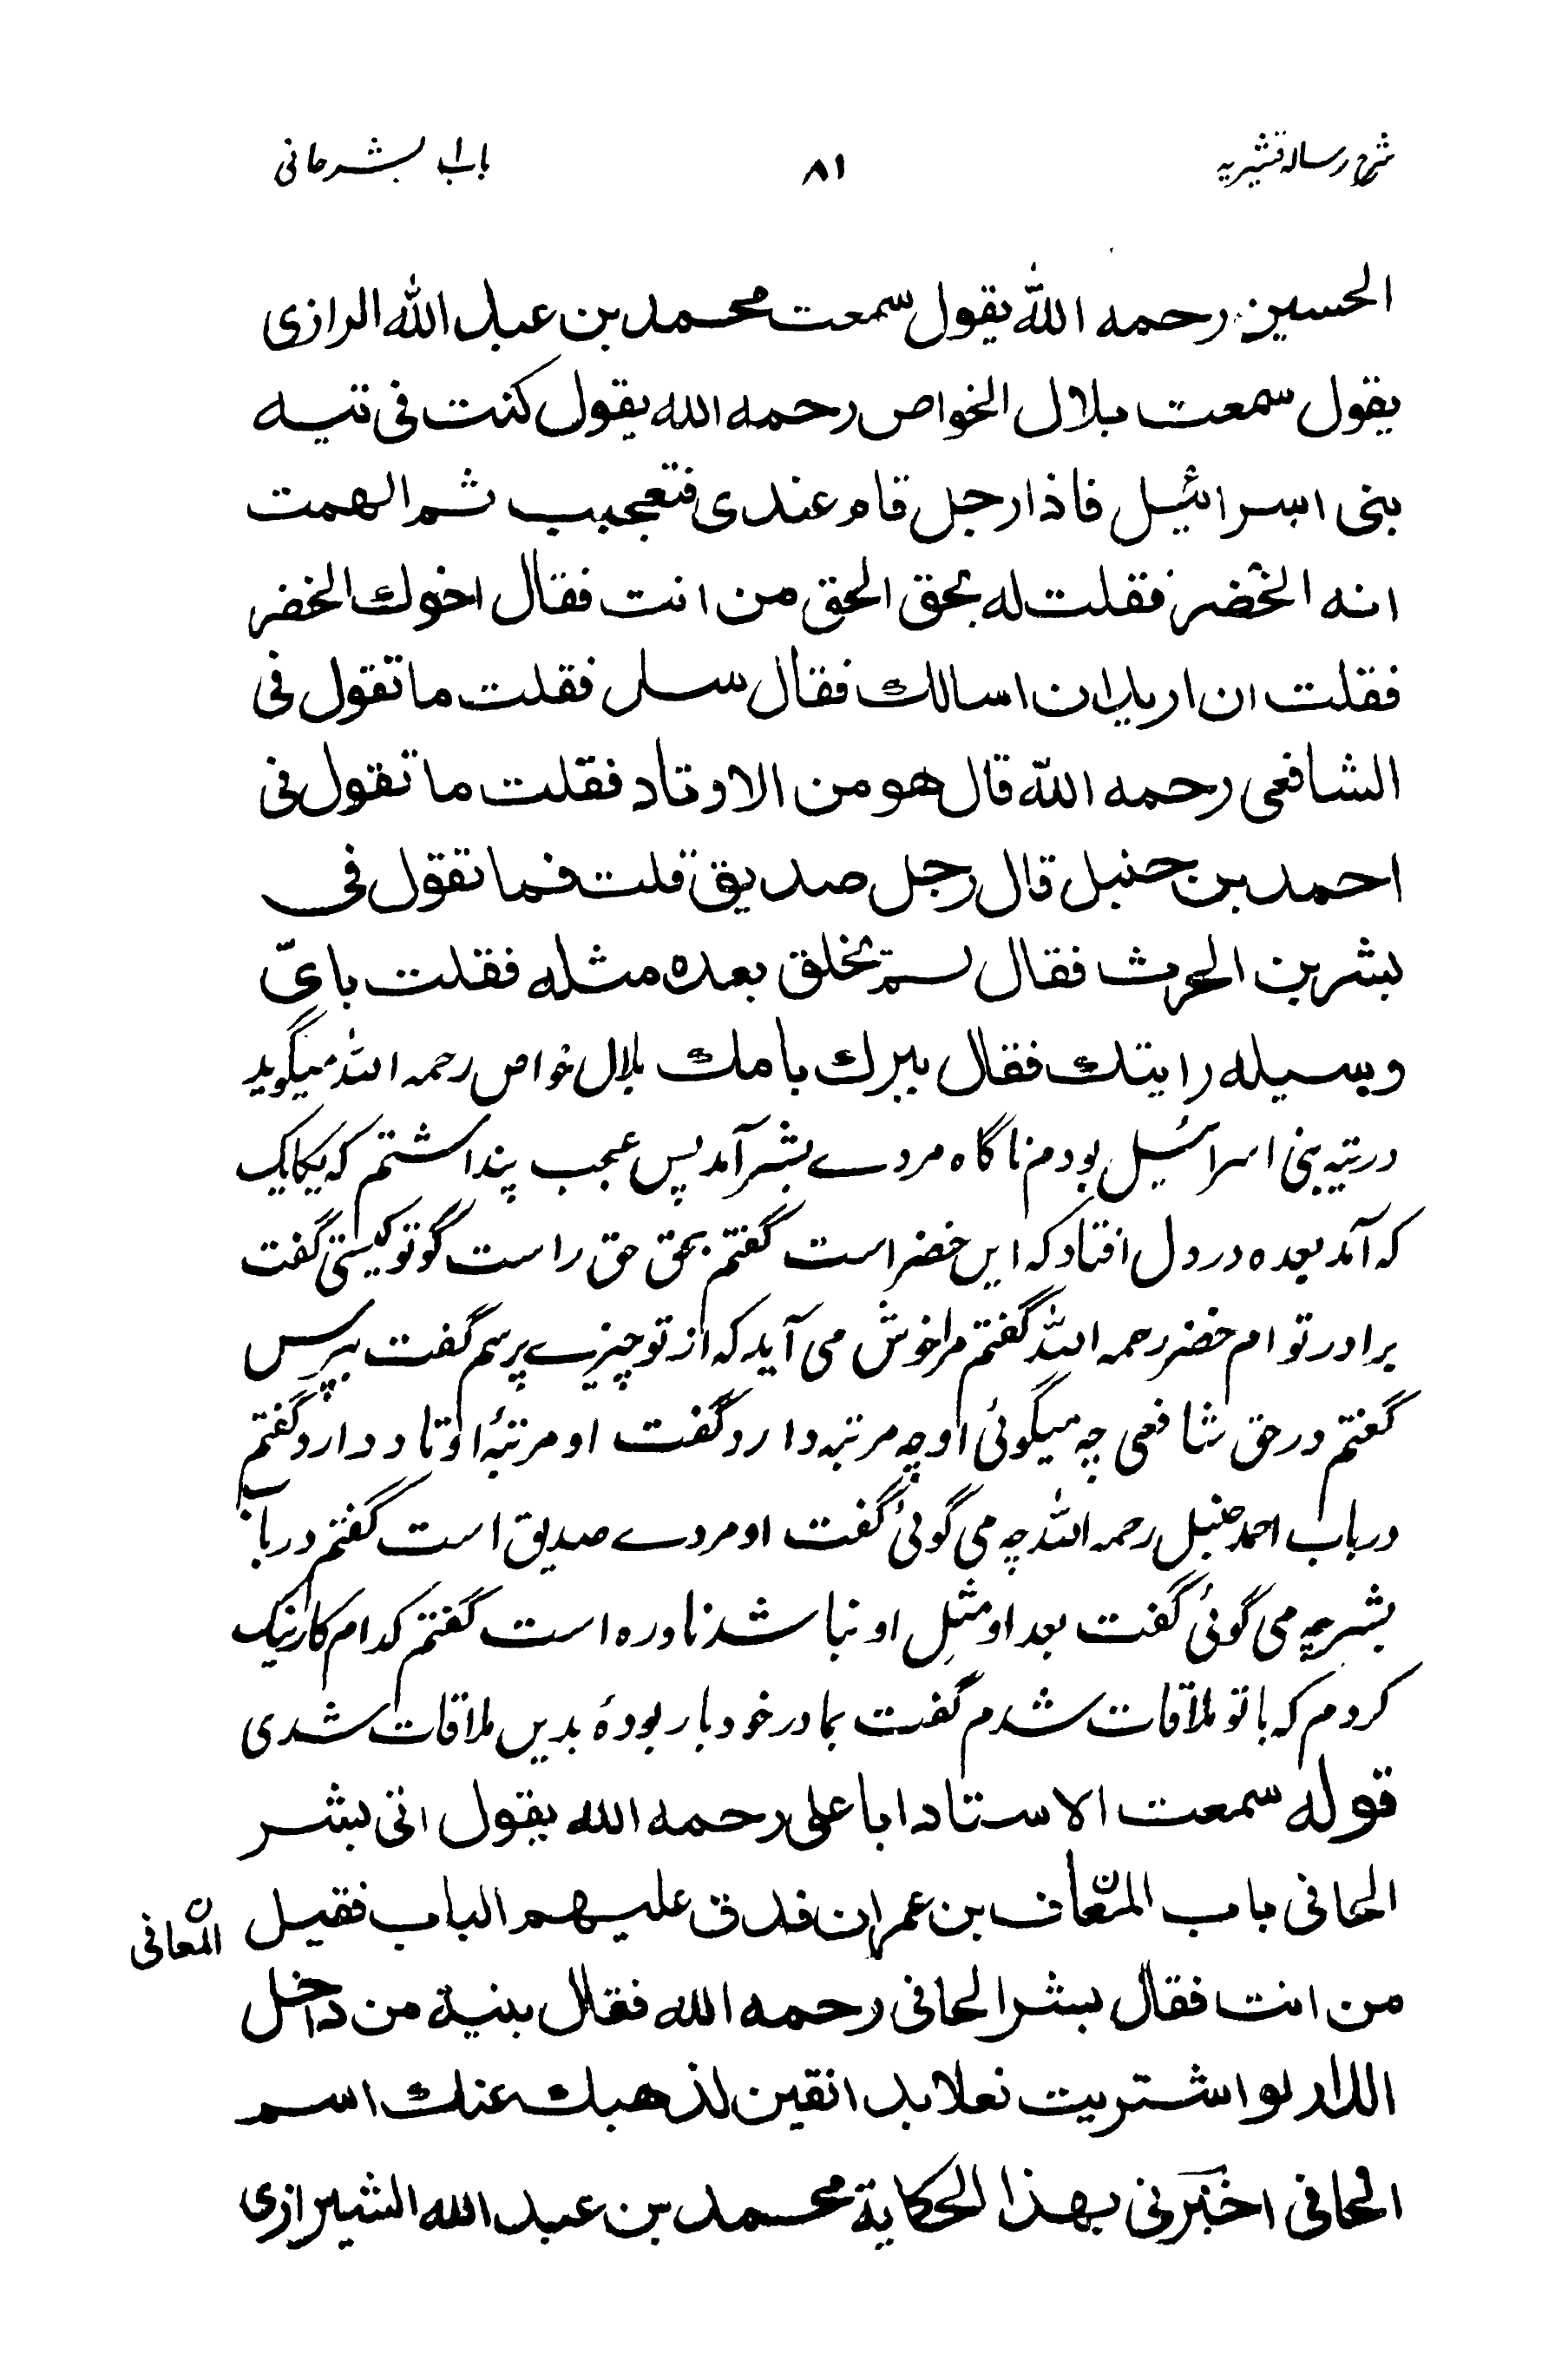 شرح رسالہ قشیریہ
۸۱
باب بشر حافی
الحسین رحمه اللّٰه یقول سمعت محمد بن عبد اللّٰه الرازی
یقول سمعت بلال الخواص رحمه الله یقول کنت فی تیه
بنی اسرائیل فاذا رجل قام عندی فتعجبب ثم الهمت
انه الخضر فقلت له بحق الحق من انت فقال اخوك الخضر
فقلت ان ارید ان اسالك فقال سل فقلت ما تقول فی
الشافعی رحمه اللّٰه قال هو من الاوتاد فقلت ما تقول فی
احمد بن حنبل قال رجل صدیق قلت فما تقول فی
بشر بن الحرث فقال لم یخلق بعده مثله فقلت بایّ
وسیله رایتك فقال ببرك بامك بلال خواص رحمہ اللّٰہ میگوید
در تیہ بنی اسرائیل بودم ناگاہ مردے بشر آمد پس عجب پنداشتم کہ یکایک
کہ آمد بعدہ در دل افتاد کہ ایں خضر است گفتم بحق حق راست گو تو کیستی گفت
برادر تو ام خضر رحمہ اللّٰہ گفتم مرا خوش می آید کہ از تو چیزے پرسم گفت بپرس
گفتم در حق شافعی چہ میگوئی او چہ مرتبہ دارد گفت او مرتبۂ اوتاد دارد گفتم
در باب احمد حنبل رحمہ اللّٰہ چہ می گوئی گفت او مردے صدیق است گفتم در باب
بشر چہ می گوئی گفت بعد او مثل او نباشد نادرہ است گفتم کدام کار نیک
کردم کہ با تو ملاقات شدم گفت بمادر خود بار بودۂ بدیں ملاقات شدی
قوله سمعت الاستاد ابا علی رحمه الله یقول اتی بشر
الحافی باب المعاف بن عمران فدق علیهم الباب فقیل
المعافی
من انت فقال بشر الحافی رحمه الله فقال بنیة من داخل
الدار لو اشتریت نعلا بدانقین لذهب عنك اسم
الحافی اخبرنی بهذا الحکایة محمد بن عبد الله الشیرازی